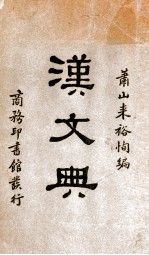 蕭山来裕恂編
漢文典
商務印書館發行